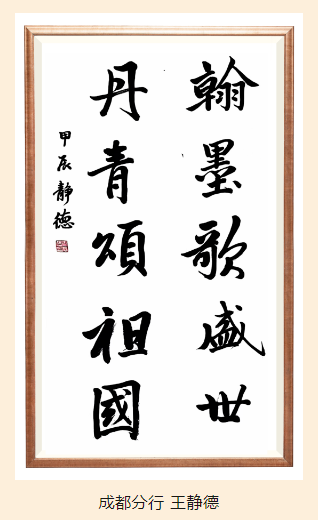 翰墨歌盛世
丹青頌祖國
甲辰靜德
成都分行 王静德